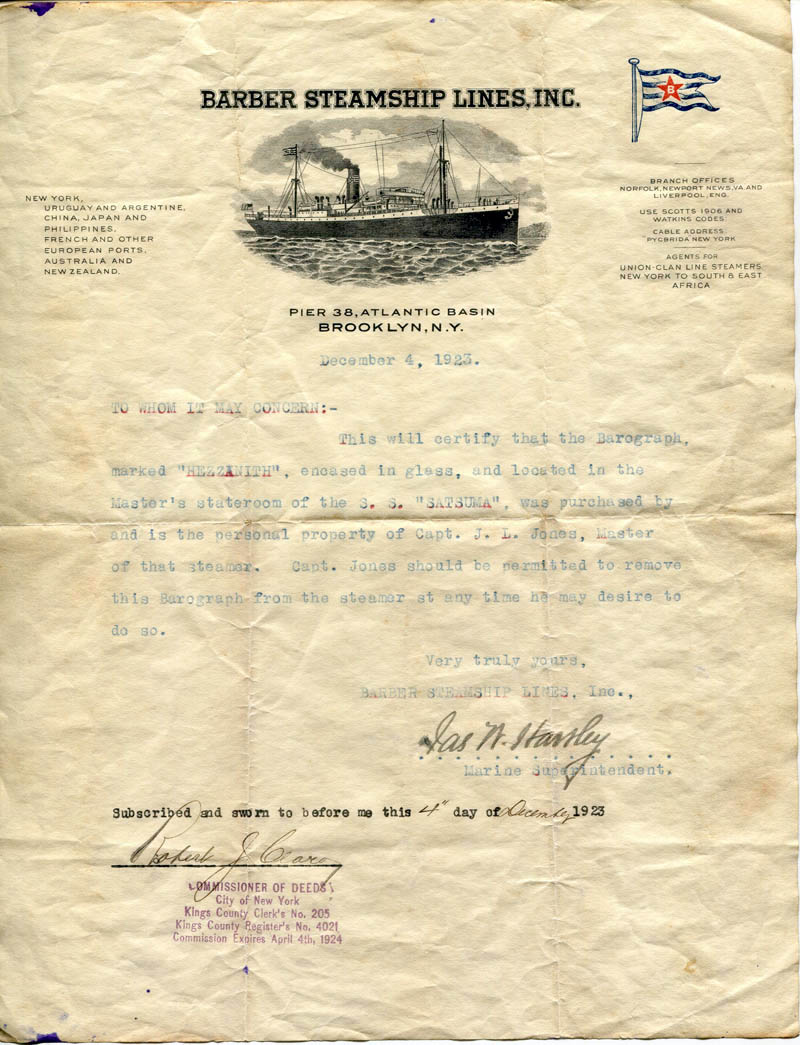 BARBER STEAMSHIP LINES, INC.
B
NEW YORK,
URUGUAY AND ARGENTINE,
CHINA, JAPAN AND
PHILIPPINES.
FRENCH AND OTHER
EUROPEAN PORTS.
AUSTRALIA AND
NEW ZEALAND.
BRANCH OFFICES
NORFOLK, NEWPORT NEWS, VA. AND
LIVERPOOL, ENG.
USE SCOTTS 1906 AND
WATKINS CODES
CABLE ADDRESS
PYCBRIDA NEW YORK
AGENTS FOR
UNION-CLAN LINE STEAMERS
NEW YORK TO SOUTH & EAST
AFRICA
PIER 38, ATLANTIC BASIN
BROOKLYN, N.Y.
December 4, 1923.
TO WHOM IT MAY CONCERN:-
This will certify that the Barograph,
marked "HEZZANITH", encased in glass, and located in the
Master's stateroom of the S. S. "SATSUMA", was purchased by
and is the personal property of Capt. J. L. Jones, Master
of that steamer. Capt. Jones should be permitted to remove
this Barograph from the steamer st any time he may desire to
do so.
Very truly yours,
BARBER STEAMSHIP LINES, Inc.,
Jas W.
Marine Superintendent.
Subscribed and sworn to before me this 4" day of December 1923
Robert J.
COMMISSIONER OF DEEDS
City of New York
Kings County Clerk's No. 205
Kings County Register's No. 4021
Commission Expires April 4th, 1924